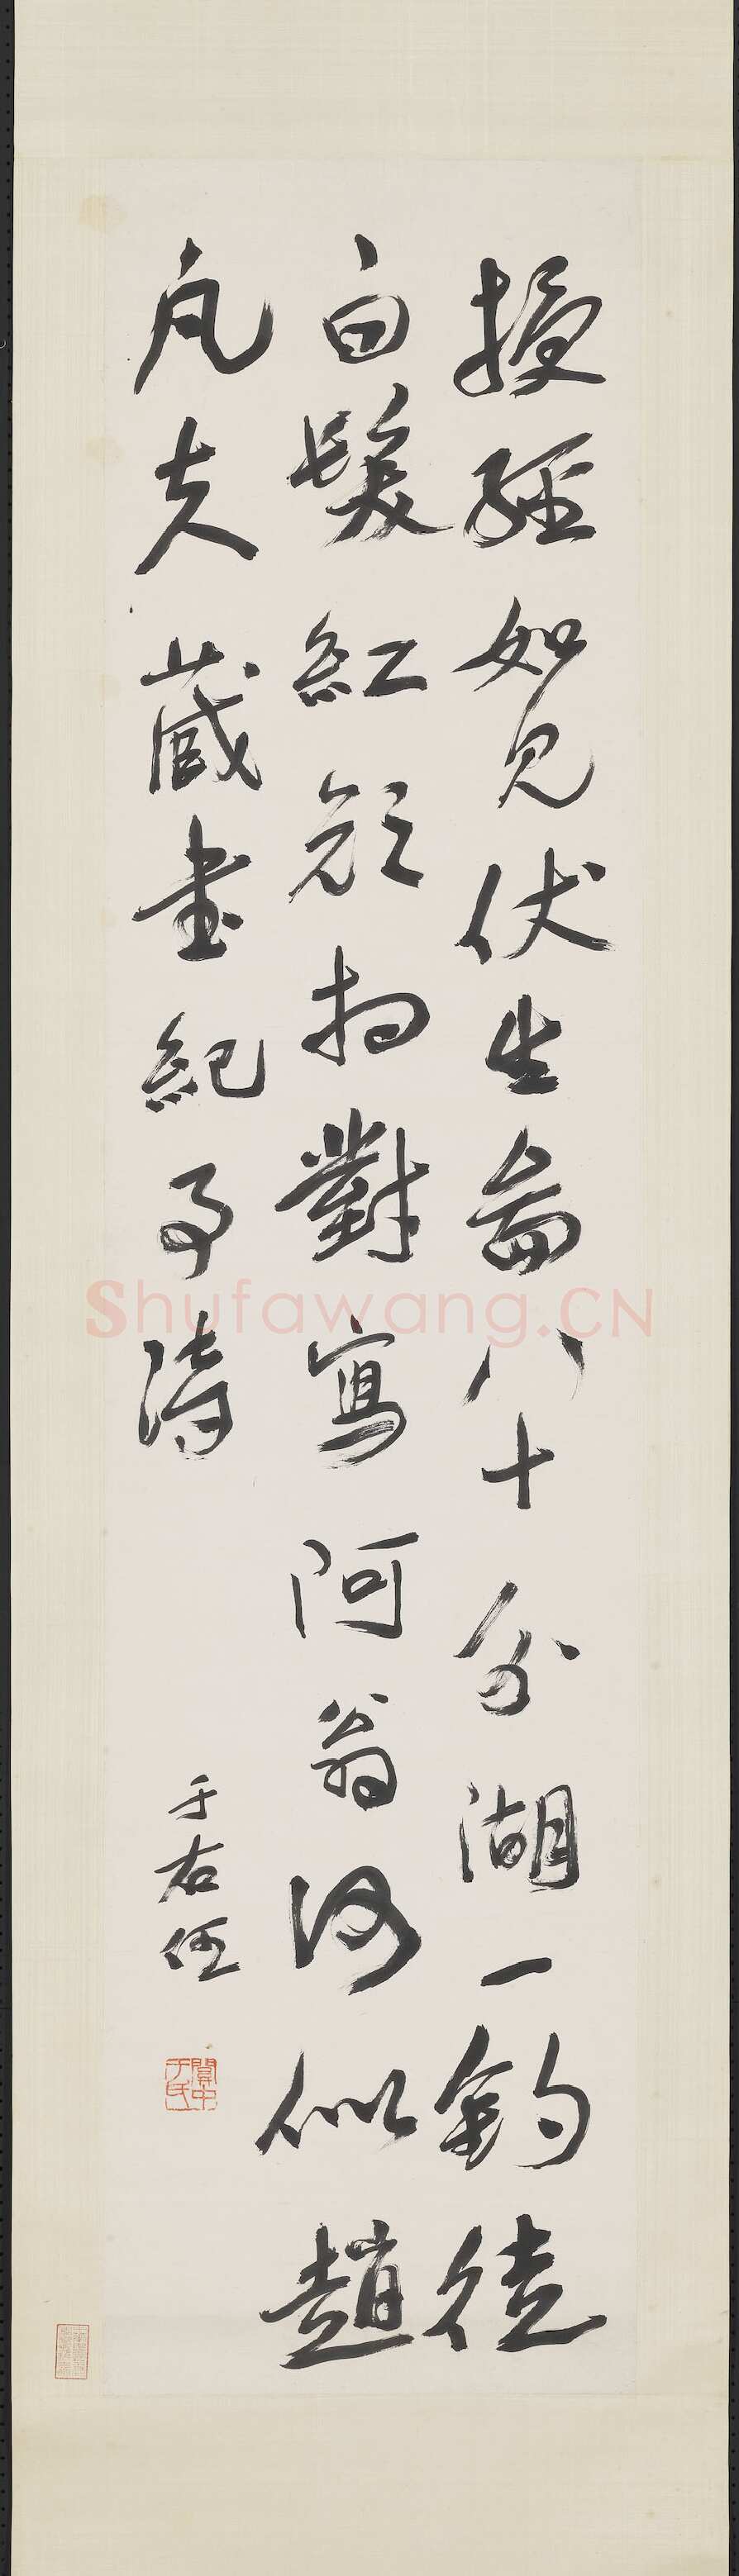 授經如見伏生圖八十分湖一釣徒
白髮紅顏相對寫阿翁何似趙
凡夫 藏書紀事詩
于右任
關中于氏
Shufawang.CN